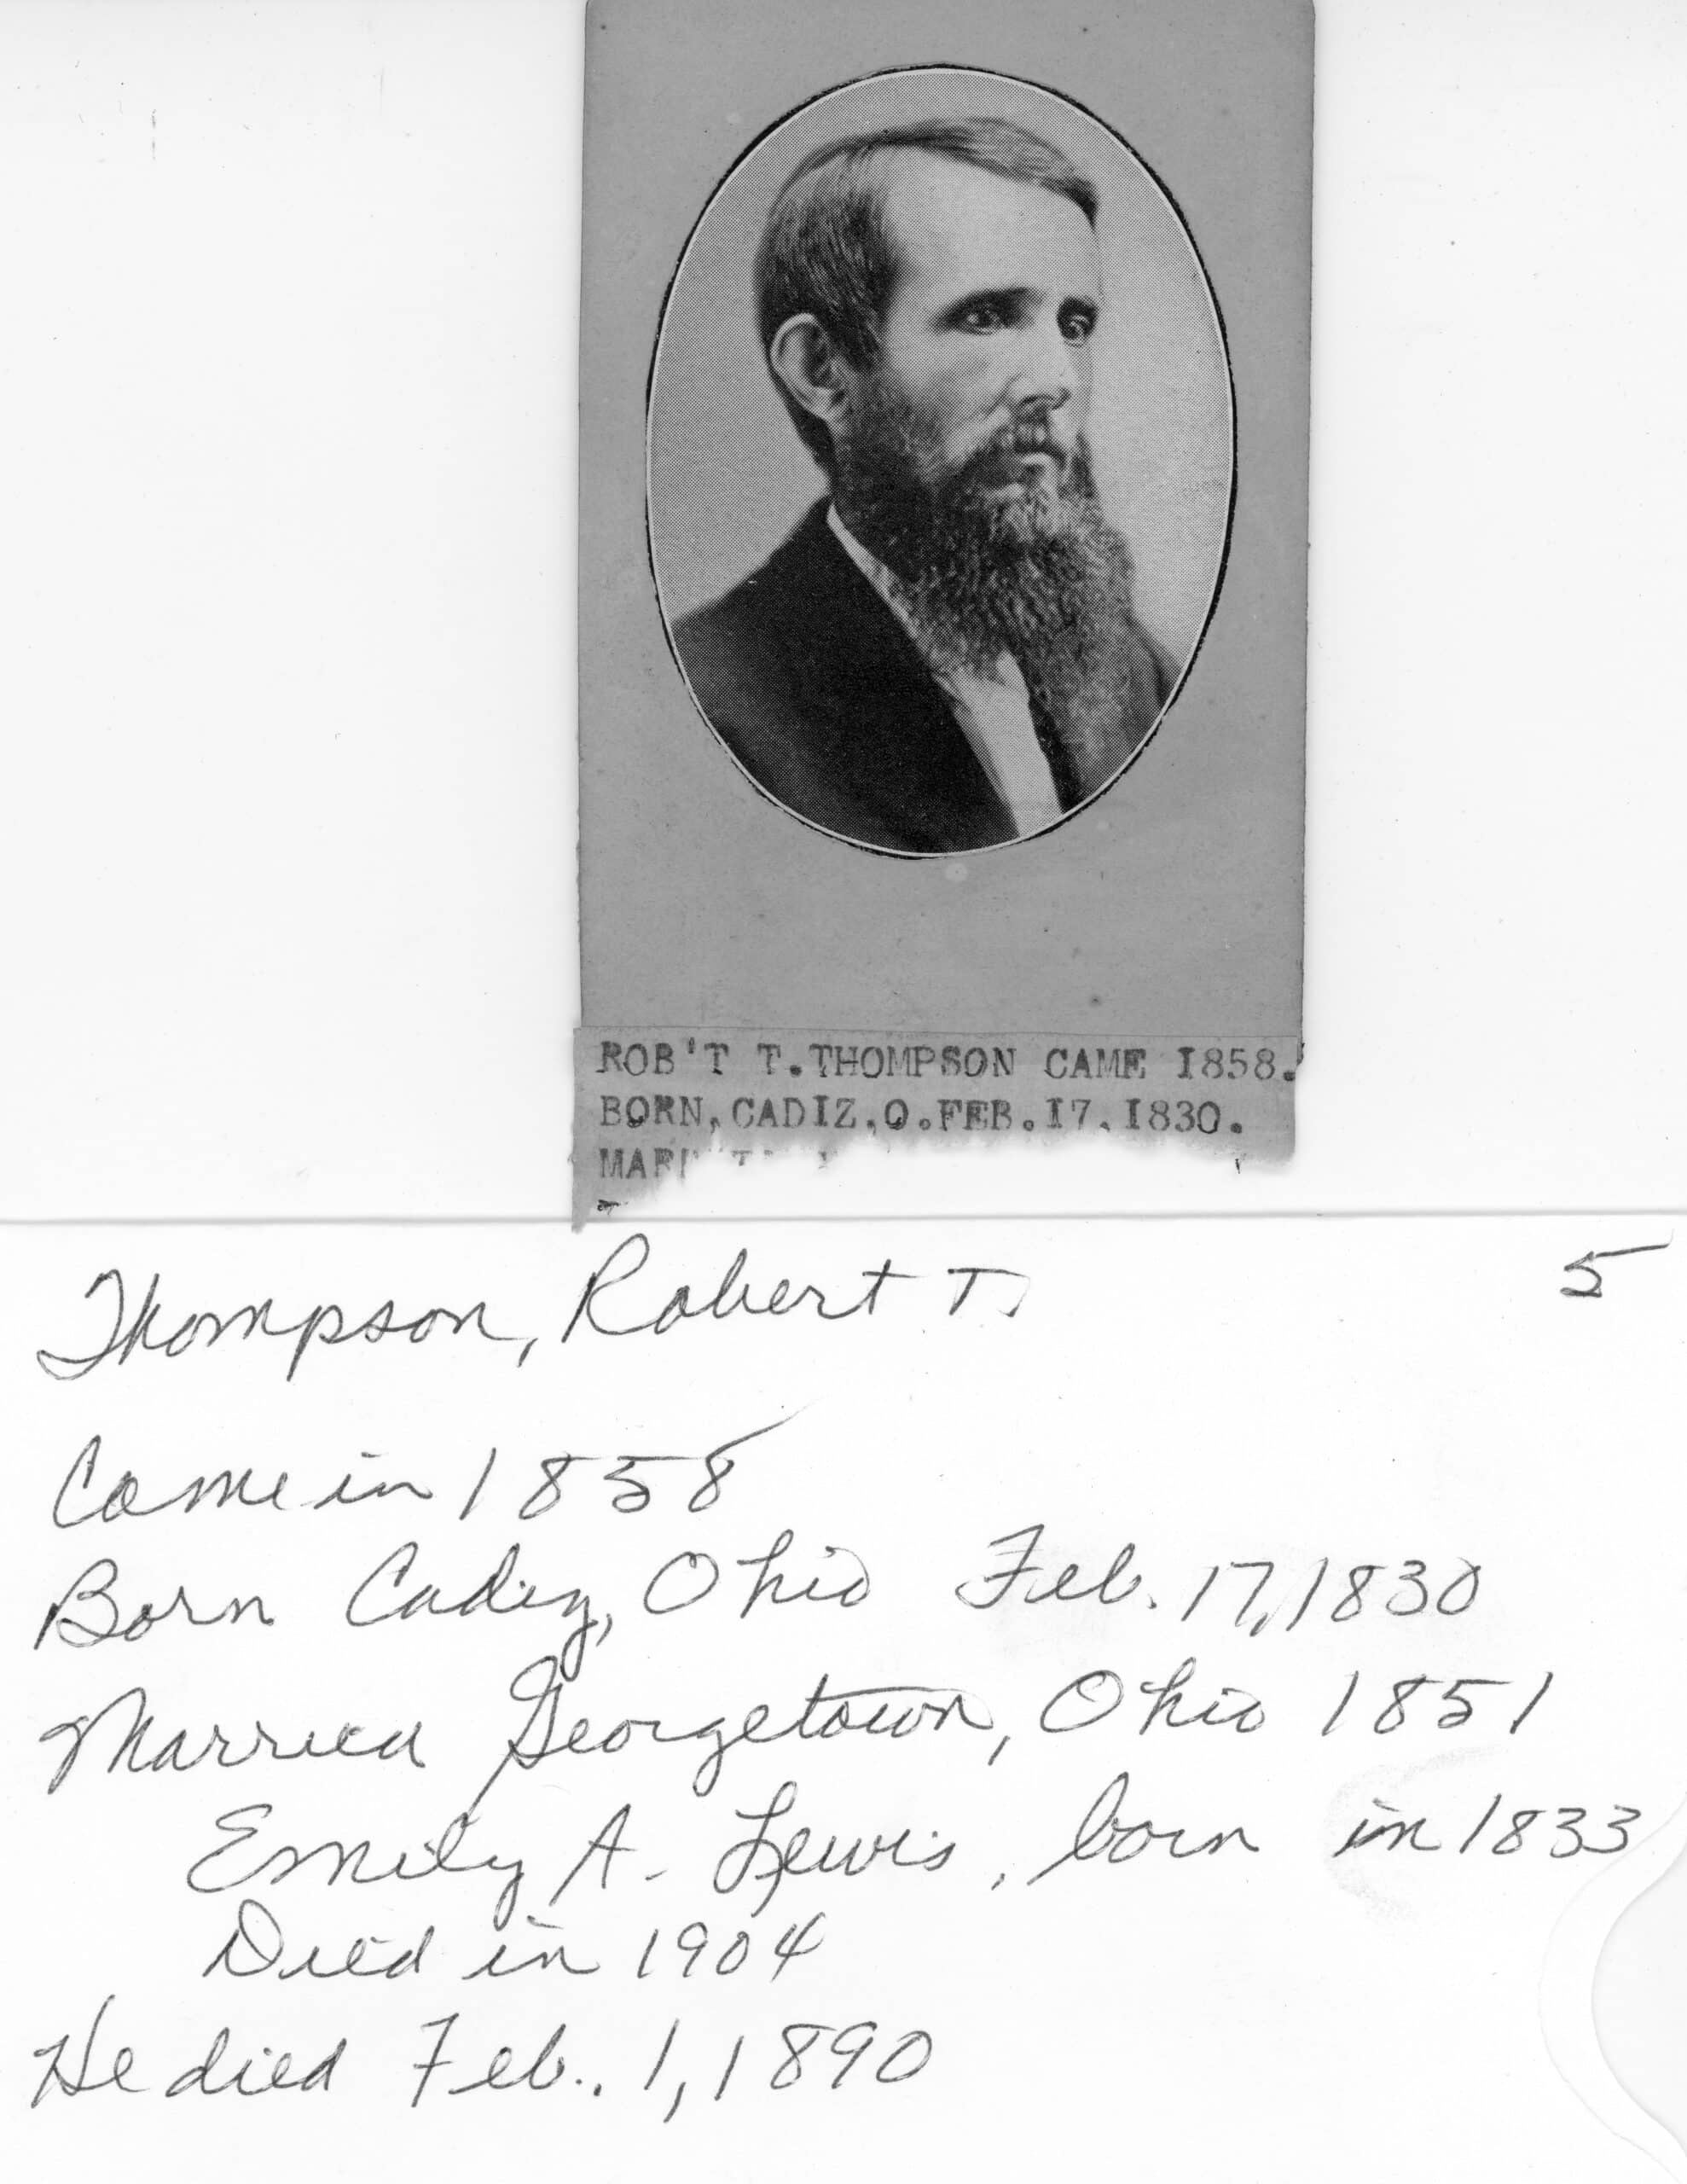 ROB'T T.THOMPSON CAME 1858.
BORN,CADIZ,O.FEB.17,1830.
Thompson, Robert T. 5
Came in 1858
Born Cadiz, Ohio Feb. 17, 1830
Married Georgetown, Ohio 1851
Emily A. Lewis, born in 1833
Died in 1904
He died Feb. 1, 1890